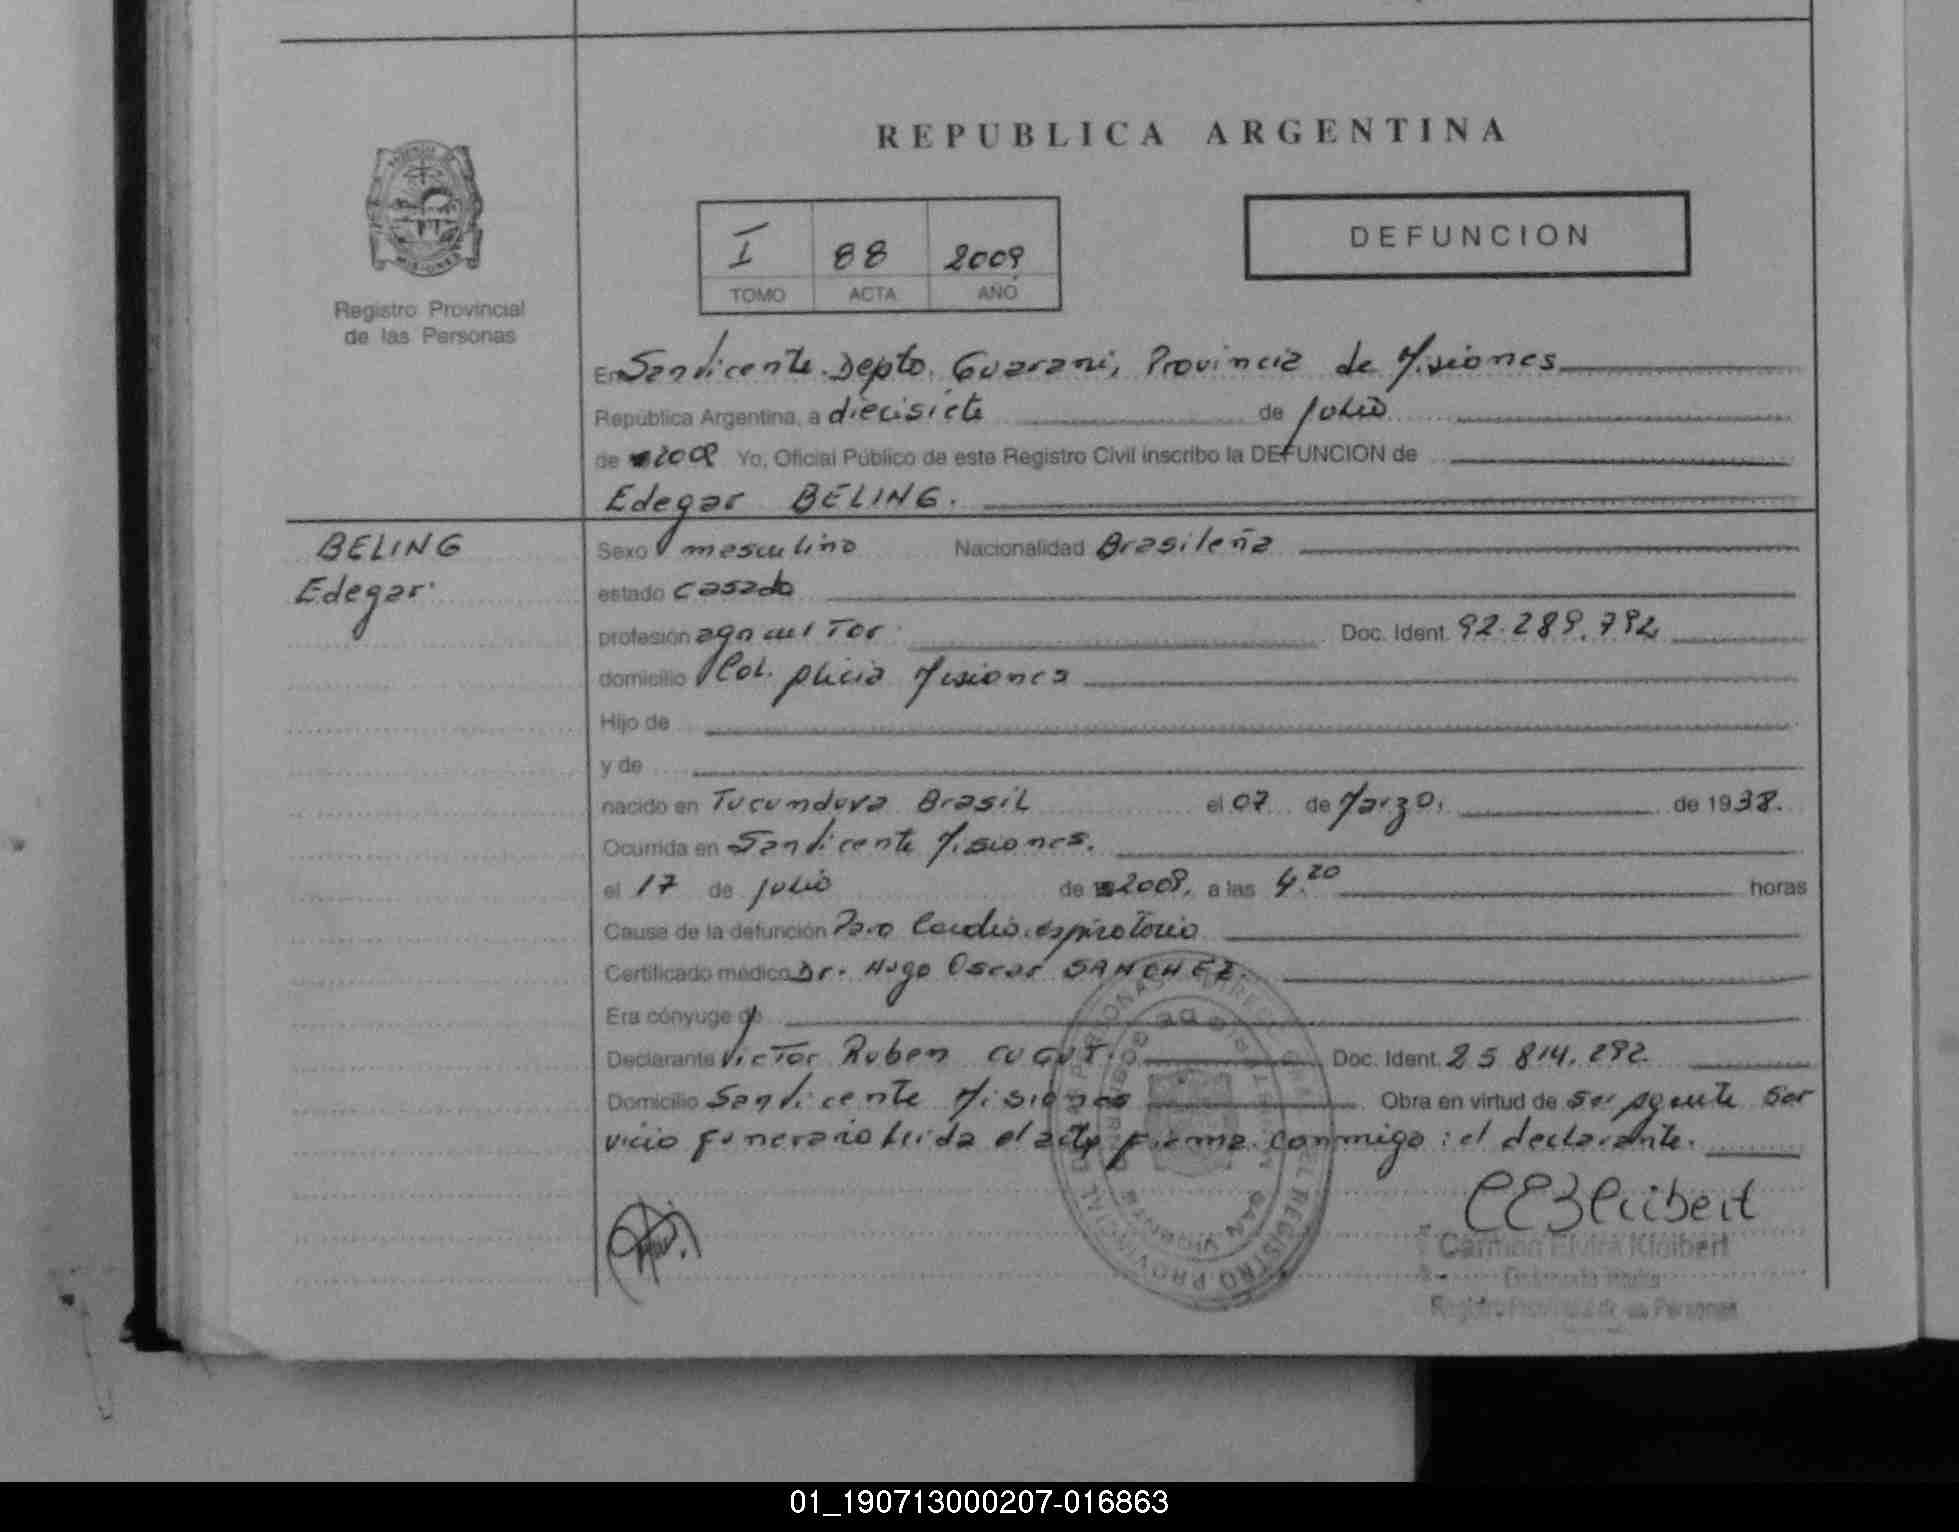 REPUBLICA ARGENTINA
PROVINCIA DE
MISIONES
Registro Provincial
de las Personas
I 88 2009
TOMO ACTA AÑO
DEFUNCION
En San Vicente. Depto. Guarani, Provincia de Misiones
República Argentina, a diecisiete de Julio
de 2009 Yo, Oficial Público de este Registro Civil inscribo la DEFUNCION de
Edegar BELING.
BELING
Edegar
Sexo masculino Nacionalidad Brasileña
estado casado
profesión agricultor Doc. Ident. 92.289.792
domicilio Col. Misiones
Hijo de
y de
nacido en Tucunduva Brasil el 07 de Marzo, de 1938.
Ocurrida en San Vicente Misiones.
el 17 de Julio de 2009, a las 4.20 horas
Causa de la defunción Paro Cardio respiratorio
Certificado médico Dr. Hugo Oscar SANCHEZ.
Era cónyuge de
Declarante Victor Ruben Doc. Ident. 25 814.292
Domicilio San Vicente Misiones Obra en virtud de ser agente Ser
vicio funerario leida el acta firma conmigo: el declarante.
SAN VICENTE
REGISTRO PROVINCIAL DE LAS PERSONAS
CEKleibert
Carmen Elvira Kleibert
Registro Provincial de las Personas
01_190713000207-016863